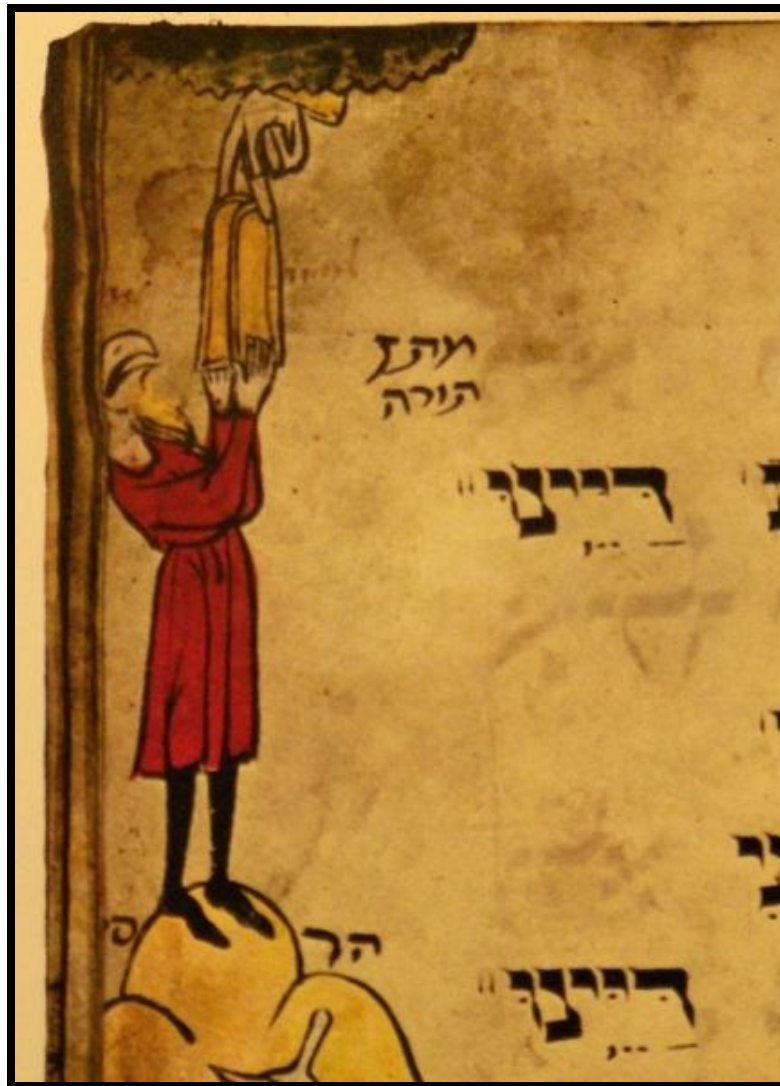 מתן
תורה
דיינו
הר
דיינו